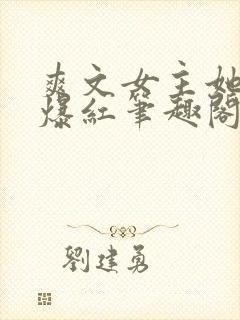 爽文女主她
爆紅筆趣閣
劉建勇